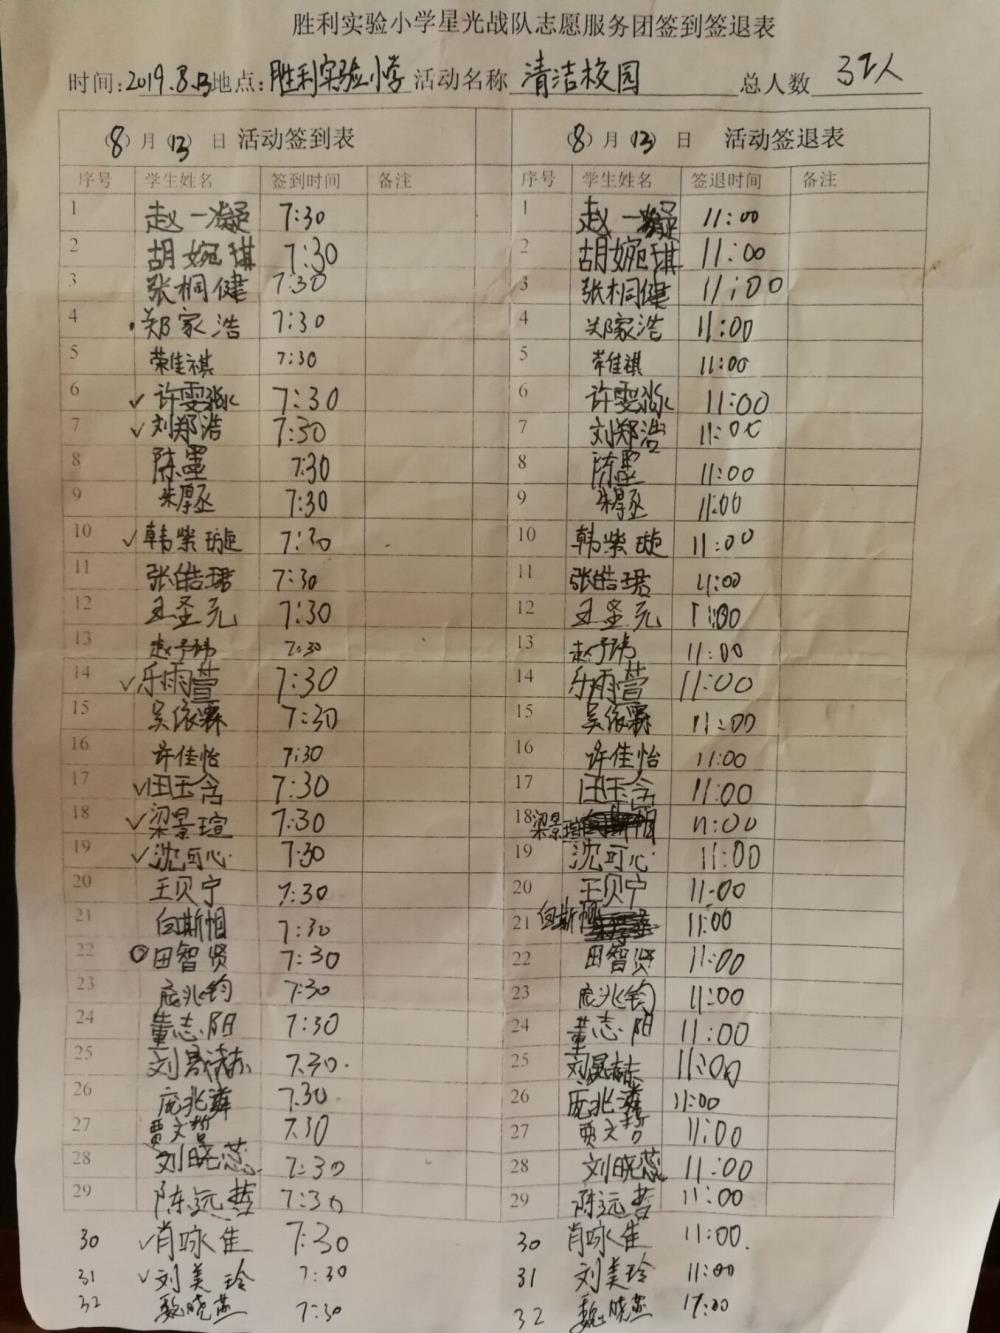 胜利实验小学星光战队志愿服务团签到签退表
时间:2019.8.13地点:胜利实验小学活动名称 清洁校园 总人数 32人
(8)月(13)日 活动签到表 (8)月(13)日 活动签退表
序号 学生姓名 签到时间 备注 序号 学生姓名 签退时间 备注
1 赵一凝 7:30 1 赵一凝 11:00
2 胡婉琪 7:30 2 胡婉琪 11:00
3 张桐健 7:30 3 张桐健 11:00
4 郑家浩 7:30 4 郑家浩 11:00
5 荣佳祺 7:30 5 荣佳祺 11:00
6 ✓许雯淼 7:30 6 许雯淼 11:00
7 ✓刘郑浩 7:30 7 刘郑浩 11:00
8 陈墨 7:30 8 陈墨 11:00
9 朱厚丞 7:30 9 朱厚丞 11:00
10 ✓韩紫璇 7:30 10 韩紫璇 11:00
11 张皓珺 7:30 11 张皓珺 11:00
12 王圣元 7:30 12 王圣元 11:00
13 赵予玮 7:30 13 赵予玮 11:00
14 ✓乐雨萱 7:30 14 乐雨萱 11:00
15 吴依霖 7:30 15 吴依霖 11:00
16 许佳怡 7:30 16 许佳怡 11:00
17 ✓田玉含 7:30 17 田玉含 11:00
18 ✓梁景瑄 7:30 18 梁景瑄 11:00
19 ✓沈可心 7:30 19 沈可心 11:00
20 王贝宁 7:30 20 王贝宁 11:00
21 向斯帼 7:30 21 向斯帼 11:00
22 田智贤 7:30 22 田智贤 11:00
23 庞兆钧 7:30 23 庞兆钧 11:00
24 董志阳 7:30 24 董志阳 11:00
25 刘 赫 7.30. 25 刘 赫 11:00
26 庞兆 7.30 26 庞兆 11:00
27 贾文哲 7.30 27 贾文哲 11:00
28 刘晓蕊 7:30 28 刘晓蕊 11:00
29 陈远哲 7:30 29 陈远哲 11:00
30 ✓肖咏佳 7:30 30 肖咏佳 11:00.
31 ✓刘美玲 7:30 31 刘美玲 11:00
32 魏晓燕 7:30 32 魏晓燕 11:00